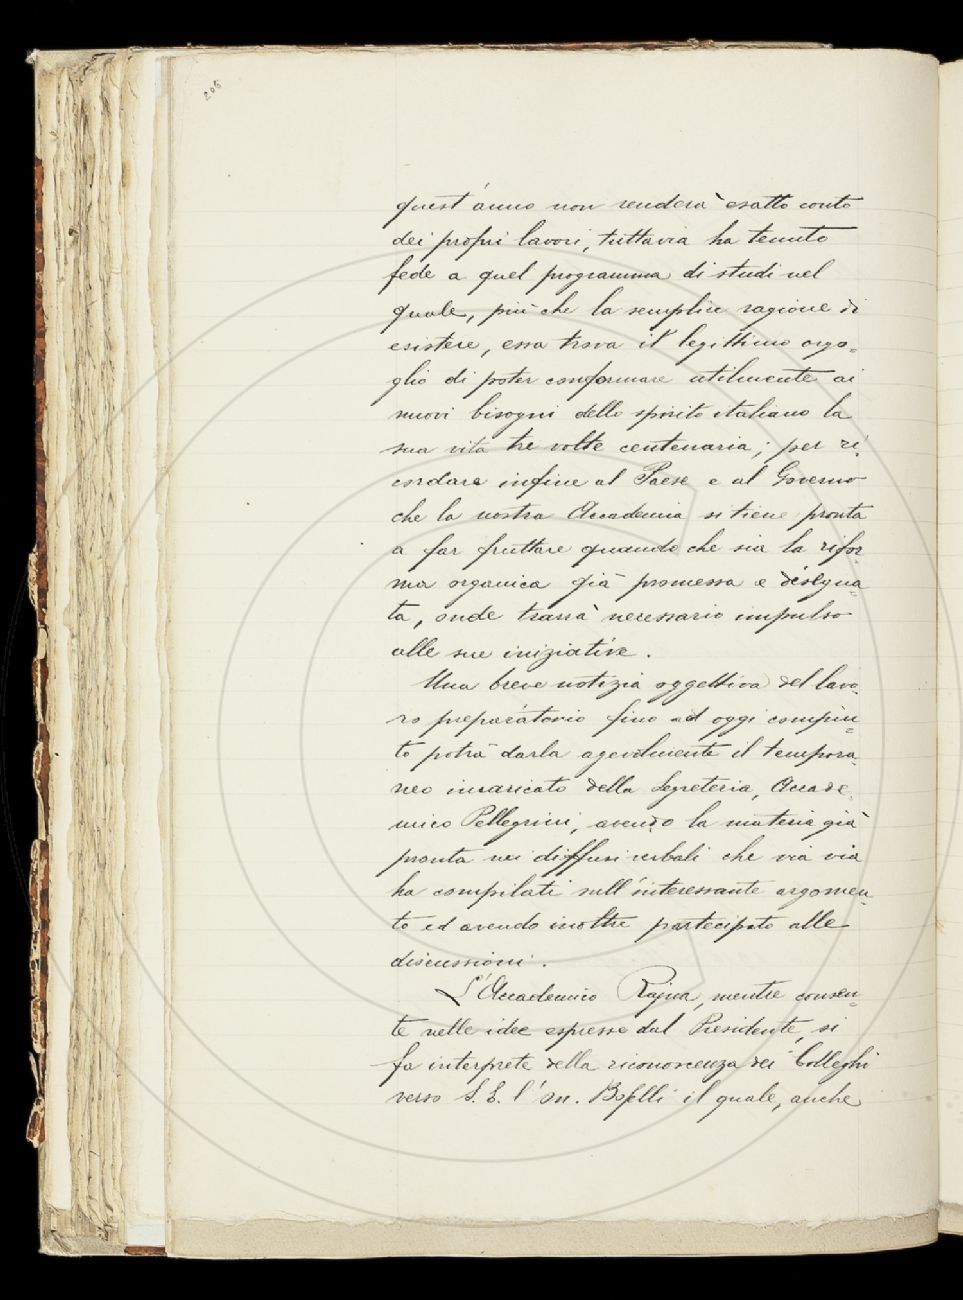 206
quest'anno non renderà esatto conto
dei propri lavori, tuttavia ha tenuto
fede a quel programma di studi nel
quale, più che la semplice ragione di
esistere, essa trova il legittimo orgo=
glio di poter conformare utilmente ai
nuovi bisogni dello spirito italiano la
sua vita tre volte centenaria; per ri=
cordare infine al Paese e al Governo
che la nostra Accademia si tiene pronta
a far fruttare quando che sia la rifor=
ma organica già promessa e disegna=
ta, onde trarrà necessario impulso
alle sue iniziative.
Una breve notizia oggettiva del lavo=
ro preparatorio fino ad oggi compiu=
to potrà darla agevolmente il tempora=
neo incaricato della Segreteria, Accade=
mico Pellegrini, avendo la materia già
pronta nei diffusi verbali che via via
ha compilati sull'interessante argomen=
to ed avendo inoltre partecipato alle
discussioni.
L'Accademico Rajna, mentre consen=
te nelle idee espresse dal Presidente, si
fa interprete della riconoscenza dei Colleghi
verso S. E. l'on. Boselli il quale, anche